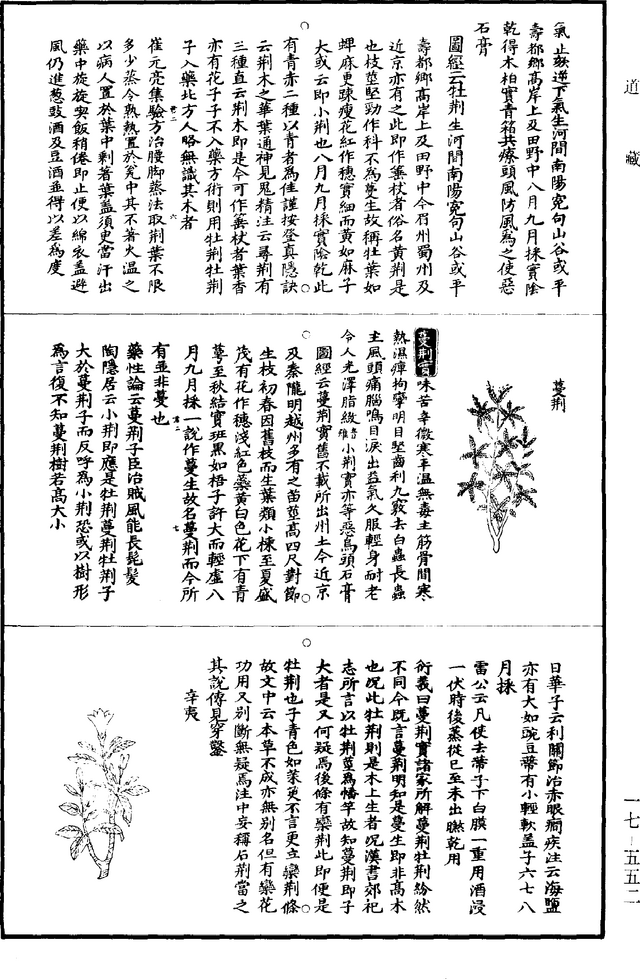 道藏
氣止欬逆下氣生河間南陽宛句山谷或平
壽都鄉高岸上及田野中八月九月採實陰
乾得木柏實青葙共療頭風防風為之使惡
石膏
圖經云牡荆生河間南陽宛句山谷或平
壽都鄉高岸上及田野中今眉州蜀州及
近京亦有之此即作箠杖者俗名黃荆是
也枝莖堅勁作科不為蔓生故稱牡葉如
蓖麻更踈瘦花紅作穗實細而黃如麻子
大或云即小荆也八月九月採實陰乾此
有青赤二種以青者為佳謹按登真隱訣
云荆木之華葉通神見鬼精注云尋荆有
三種直云荆木即是今可作箠杖者葉香
亦有花子子不入藥方術則用牡荆牡荆
子入藥北方人略無識其木者
崔元亮集驗方治腰脚蒸法取荆葉不限
多少蒸令熟熱置於瓮中其下著火溫之
以病人置於葉中剩著葉蓋須臾當汗出
藥中旋旋喫飯稍倦即止便以綿衣蓋避
風仍進葱豉酒及豆酒並得以差為度
蔓荆實味苦辛微寒平溫無毒主筋骨間寒
熱濕痺拘攣明目堅齒利九竅去白蟲長蟲
主風頭痛腦鳴目淚出益氣久服輕身耐老
令人光澤脂緻小荆實亦等惡烏頭石膏
圖經云蔓荆實舊不載所出州土今近京
及秦隴明越州多有之苗莖高四尺對節
生枝初春因舊枝而生葉類小楝至夏盛
茂有花作穗淺紅色蘂黃白色花下有青
萼至秋結實斑黑如梧子許大而輕虛八
月九月採一說作蔓生故名蔓荆而今所
有並非蔓也
藥性論云蔓荆子臣治賊風能長髭髮
陶隱居云小荆即應是牡荆蔓荆牡荆子
大於蔓荆子而反呼為小荆恐或以樹形
為言復不知蔓荆樹若高大小
蔓荆
日華子云利關節治赤眼癎疾注云海鹽
亦有大如豌豆蒂有小輕軟蓋子六七八
月採
雷公云凡使去蒂子下白膜一重用酒浸
一伏時後蒸從巳至未出瞭乾用
衍義曰蔓荆實諸家所解蔓荆牡荆紛然
不同今既言蔓荆明知是蔓生即非高木
也況此牡荆則是木上生者況漢書郊祀
志所言以牡荆莖為幡竿故知蔓荆即子
大者是又何疑焉後條有欒荆此即便是
牡荆也子青色如茱萸不言更立欒荆條
故文中云本草不成亦無別名但有欒花
功用又別斷無疑焉注中妄稱石荆當之
其說傳見穿鑿
辛夷
一七-五五二